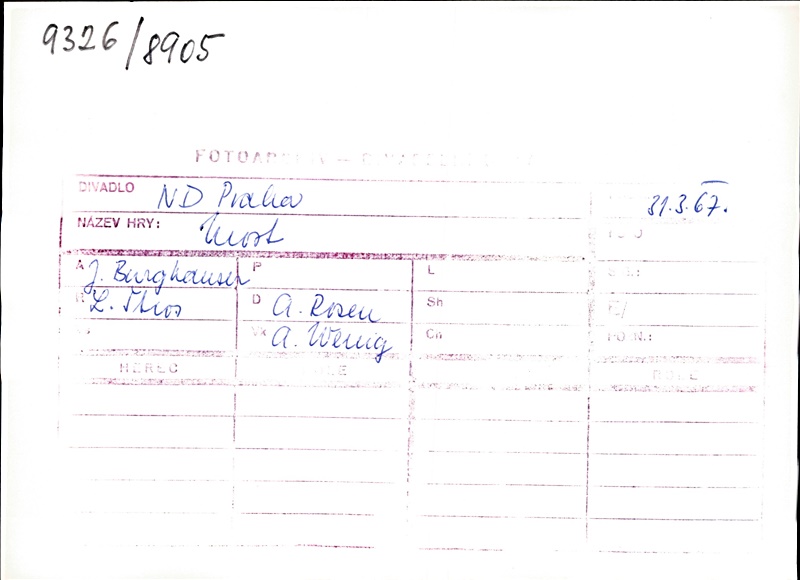 9326/8905
DIVADLO ND Praha 31.3.67.
NÁZEV HRY: Most
A J. Burghauser P L
L. Štros D A. Rosen Sh
A. Wenig
HEREC ROLE